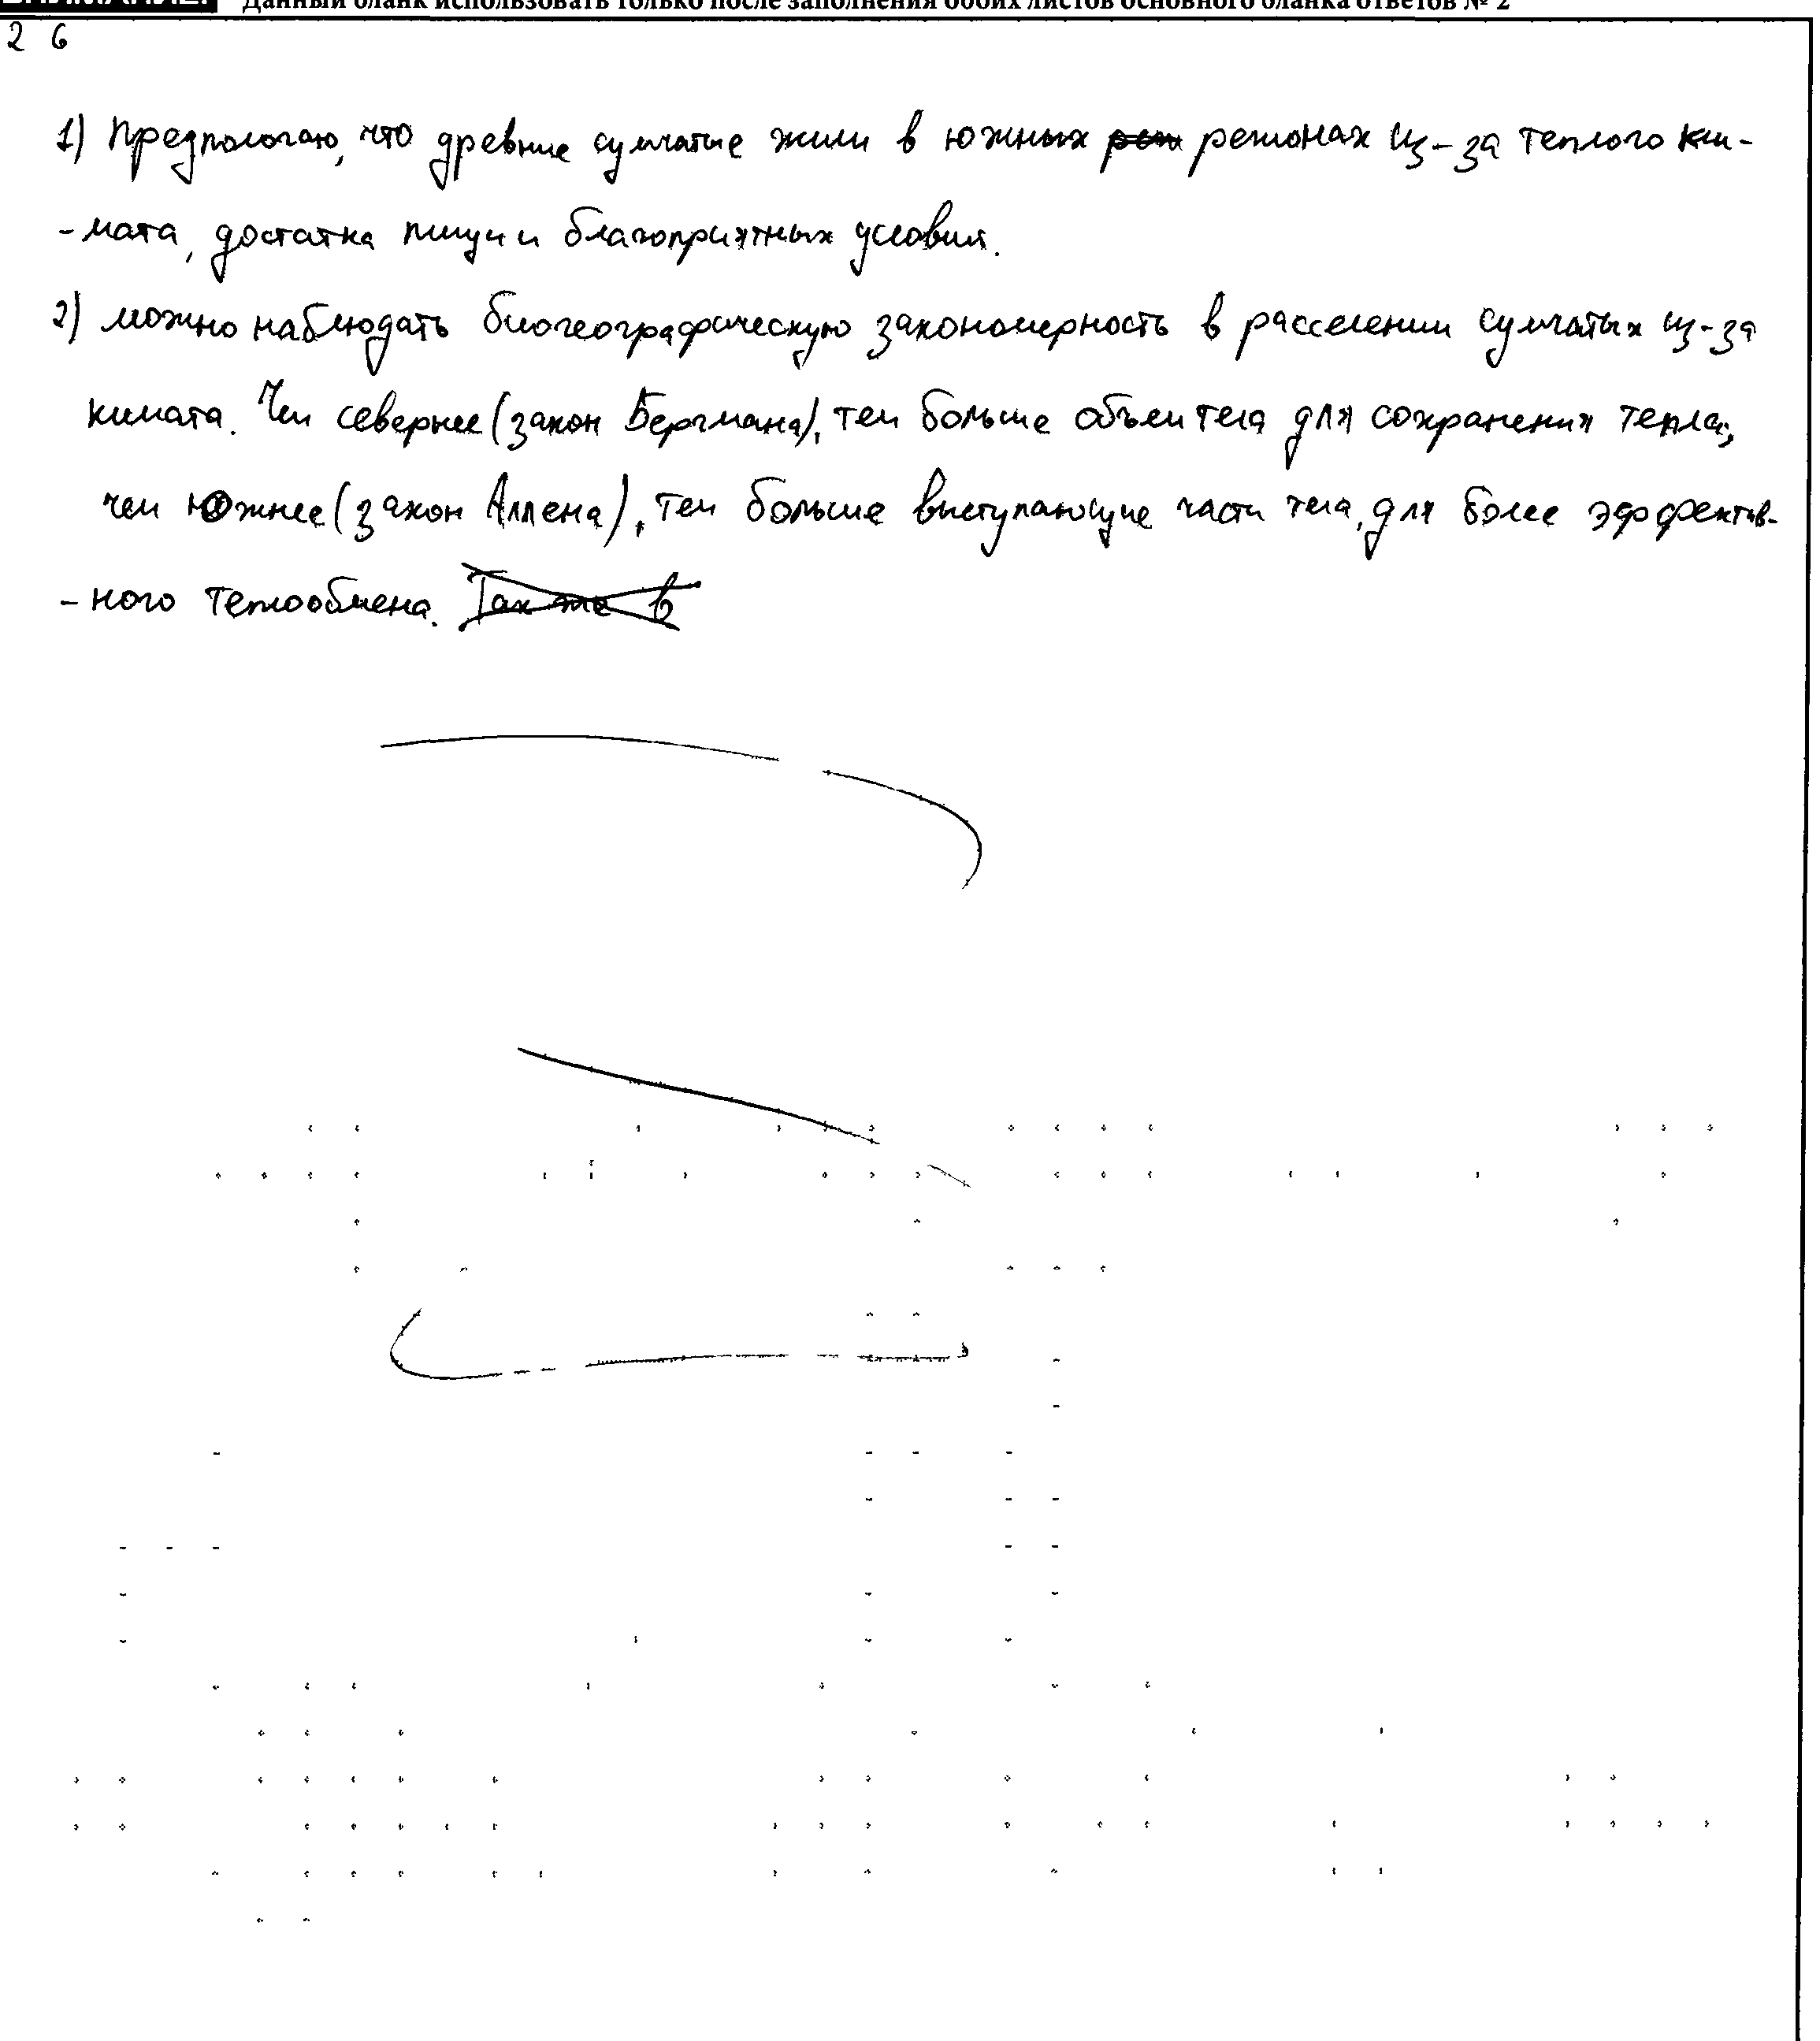 Данный бланк использовать только после заполнения обоих листов основного бланка ответов № 2
26
1) Предпологаю, что древние сумчатые жили в южных регионах из-за теплого кли-
-мата, достатка пищи и благоприятных условия.
2) можно наблюдать биогеографическую закономерность в расселении сумчатых из-за
климата. Чем севернее (закон Бергмана), тем больше объем тела для сохранения тепла;
чем южнее (закон Аллена), тем больше выступающие части тела, для более эффектив-
-ного теплообмена. Так же в